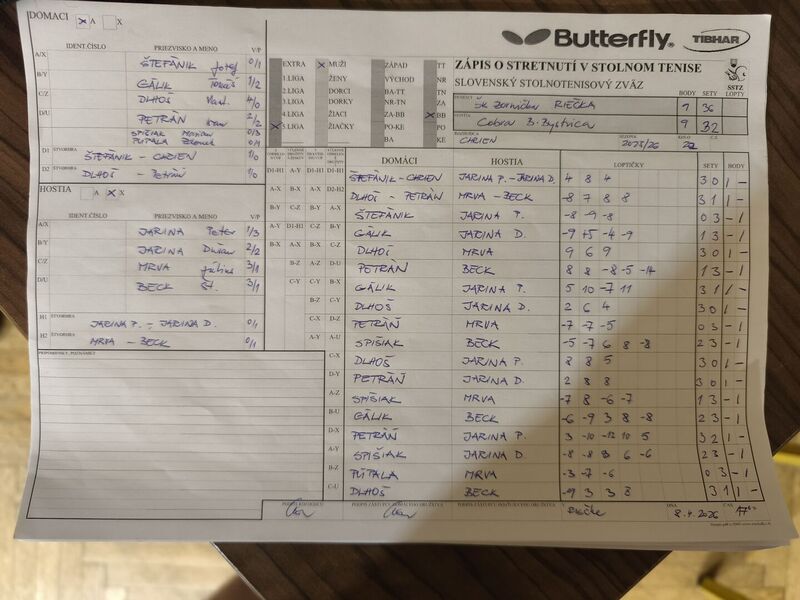 DOMACI X A X
Butterfly. TIBHAR
IDENT.ČÍSLO PRIEZVISKO A MENO V/P
A/X ŠTEFÁNIK Jozef 0/1
B/Y GÁLIK Tomáš 1/2
C/Z DLHOŠ Vlast. 4/0
D/U PETRÁN 2/2
SPIŠIAK Marian 0/3
PÚPALA 0/1
D1 ŠTVORHRA ŠTEFÁNIK - CHRIEN 1/0
D2 ŠTVORHRA DLHOŠ - PETRÁN 1/0
HOSTIA A X X
IDENT.ČÍSLO PRIEZVISKO A MENO V/P
A/X JARINA Peter 1/3
B/Y JARINA Dušan 2/2
C/Z MRVA Július 3/1
D/U BECK Št. 3/1
H1 ŠTVORHRA JARINA P. - JARINA D. 0/1
H2 ŠTVORHRA MRVA - BECK 0/1
PRIPOMIENKY, POZNÁMKY
EXTRA X MUŽI ZÁPAD TT
1.LIGA ŽENY VÝCHOD NR
2.LIGA DORCI BA-TT TN
3.LIGA DORKY NR-TN ZA
4.LIGA ŽIACI ZA-BB X BB
X 5.LIGA ŽIAČKY PO-KE PO
BA KE
ZÁPIS O STRETNUTÍ V STOLNOM TENISE
SLOVENSKÝ STOLNOTENISOVÝ ZVÄZ SSTZ
DOMÁCI BODY SETY LOPTY
ŠK Zornička RIEČKA 9 36
HOSTIA Cobra B.Bystrica 9 32
ROZHODCA CHRIEN SEZÓNA 2025/26 KOLO 22
DOMÁCI HOSTIA LOPTIČKY SETY BODY
D1-H1 A-Y D1-H1 ŠTEFÁNIK - CHRIEN JARINA P. - JARINA D. 4 8 4 3 0 1 -
A-X B-X A-X D2-H2 DLHOŠ - PETRÁN MRVA - BECK -8 7 8 8 3 1 1 -
B-Y C-Z B-Y A-X ŠTEFÁNIK JARINA P. -8 -9 -8 0 3 - 1
A-Y D1-H1 C-Z B-Y GÁLIK JARINA D. -9 +5 -4 -9 1 3 - 1
B-X A-X B-X C-Z DLHOŠ MRVA 9 6 9 3 0 1 -
B-Z A-Z D-U PETRÁN BECK 8 8 -8 -5 -14
C-Y C-Y B-X GÁLIK JARINA P. 5 10 -7 11 3 1 1 -
B-Z C-Y DLHOŠ JARINA D. 2 6 4 3 0 1 -
C-X D-Z PETRÁN MRVA -7 -7 -5 0 3 - 1
A-Y A-U SPIŠIAK BECK -5 -7 6 8 -8 2 3 - 1
C-X DLHOŠ JARINA P. 8 8 5 3 0 1 -
D-Y PETRÁN JARINA D. 2 8 8 3 0 1 -
A-Z SPIŠIAK MRVA -7 8 -6 -7 1 3 - 1
B-U GÁLIK BECK -6 -9 3 8 -8 2 3 - 1
D-X PETRÁN JARINA P. 3 -10 -12 10 5 3 2 1 -
A-Y SPIŠIAK JARINA D. -8 -8 3 6 -6 2 3 - 1
B-Z PÚPALA MRVA -3 -7 -6 0 3 - 1
C-U DLHOŠ BECK -9 3 3 8 3 1 1 -
PODPIS ROZHODCU PODPIS ZÁSTUPCU DOMÁCEHO DRUŽSTVA PODPIS ZÁSTUPCU HOSŤUJÚCEHO DRUŽSTVA V Riečke DŇA 8.4.2026 ČAS